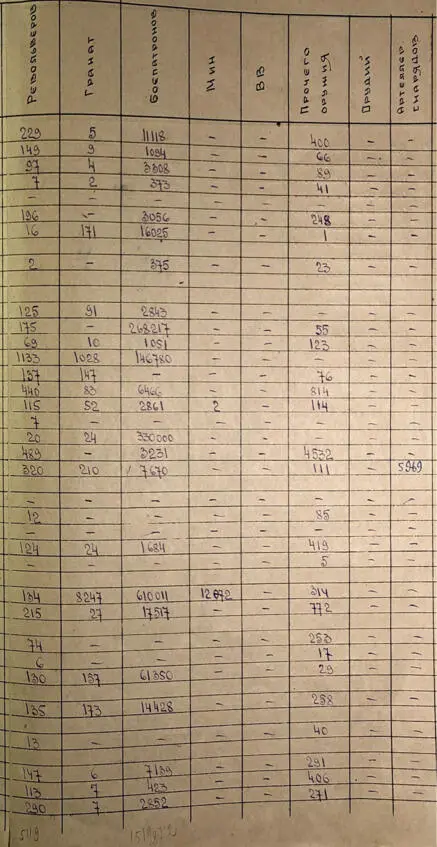 Револьверов Гранат Боепатронов Мин ВВ Прочего оружия Орудий Артеллер. снарядов
229 5 11118 - - 400 - -
149 9 1094 - - 66 - -
97 4 3308 - - 89 - -
7 2 373 - - 41 - -
- - - - - - - -
196 - 3056 - - 248 - -
16 171 16025 - - 1 - -
2 - 375 - - 23 - -
125 91 2843 - - - - -
175 - 268217 - - 55 - -
69 10 1051 - - 123 - -
1133 1028 146780 - - - - -
137 147 - - - 76 - -
440 83 6466 - - 814 - -
115 52 2861 2 - 114 - -
7 - - - - - - -
20 24 330000 - - - - -
489 - 3231 - - 4532 - -
320 210 7670 - - 111 - 5969
- - - - - - - -
12 - - - - 85 - -
- - - - - - - -
124 24 1684 - - 419 - -
- - - - - 5 - -
134 8247 610011 - 314 - -
215 27 17517 - - 772 - -
74 - - - - 253 - -
6 - - - - 17 - -
130 157 61350 - - 29 - -
135 173 14428 - - 258 - -
13 - - - - 40 - -
147 6 7139 - - 291 - -
113 7 423 - - 406 - -
290 7 2852 - - 271 - -